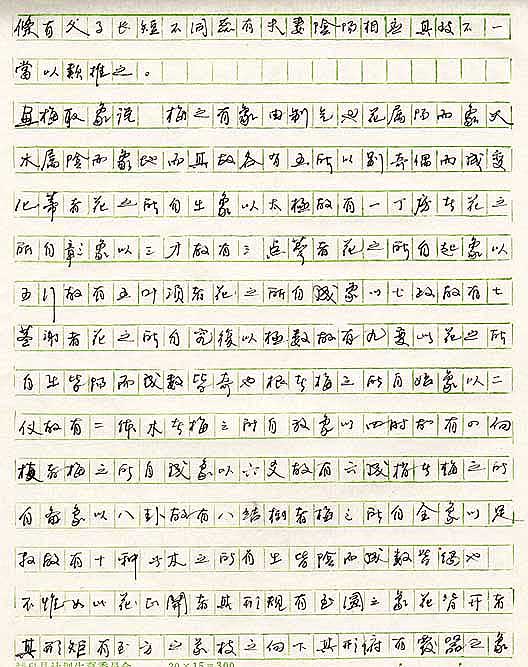 條有父子长短不同蕊有夫妻陰陽相应其枝不一
當以類推之。
画梅取象说 梅之有象由制气也花属陽而象天
木属陰而象地而其故各有五所以别奇偶而成变
化蒂者花之所自出象以太極故有一丁房者花之
所自彰象以三才故有三点萼者花之所自起象以
五行故有五叶须者花之所自成象以七政故有七
茎谢者花之所自究復以極数故有九变此花之所
自出皆陽而成数皆奇也根者梅之所自始象以二
仪故有二体木者梅之所自放象以四时故有四向
枝者梅之所自成象以六爻故有六成梢者梅之所
自备象以八卦故有八结樹者梅之所自全象以足
数故有十种此木之所自出皆陰而成数皆偶也
不惟如此花正開者其形规有至圆之象花背开者
其形矩有至方之象枝之向下其形俯有覆器之象
20×15=300